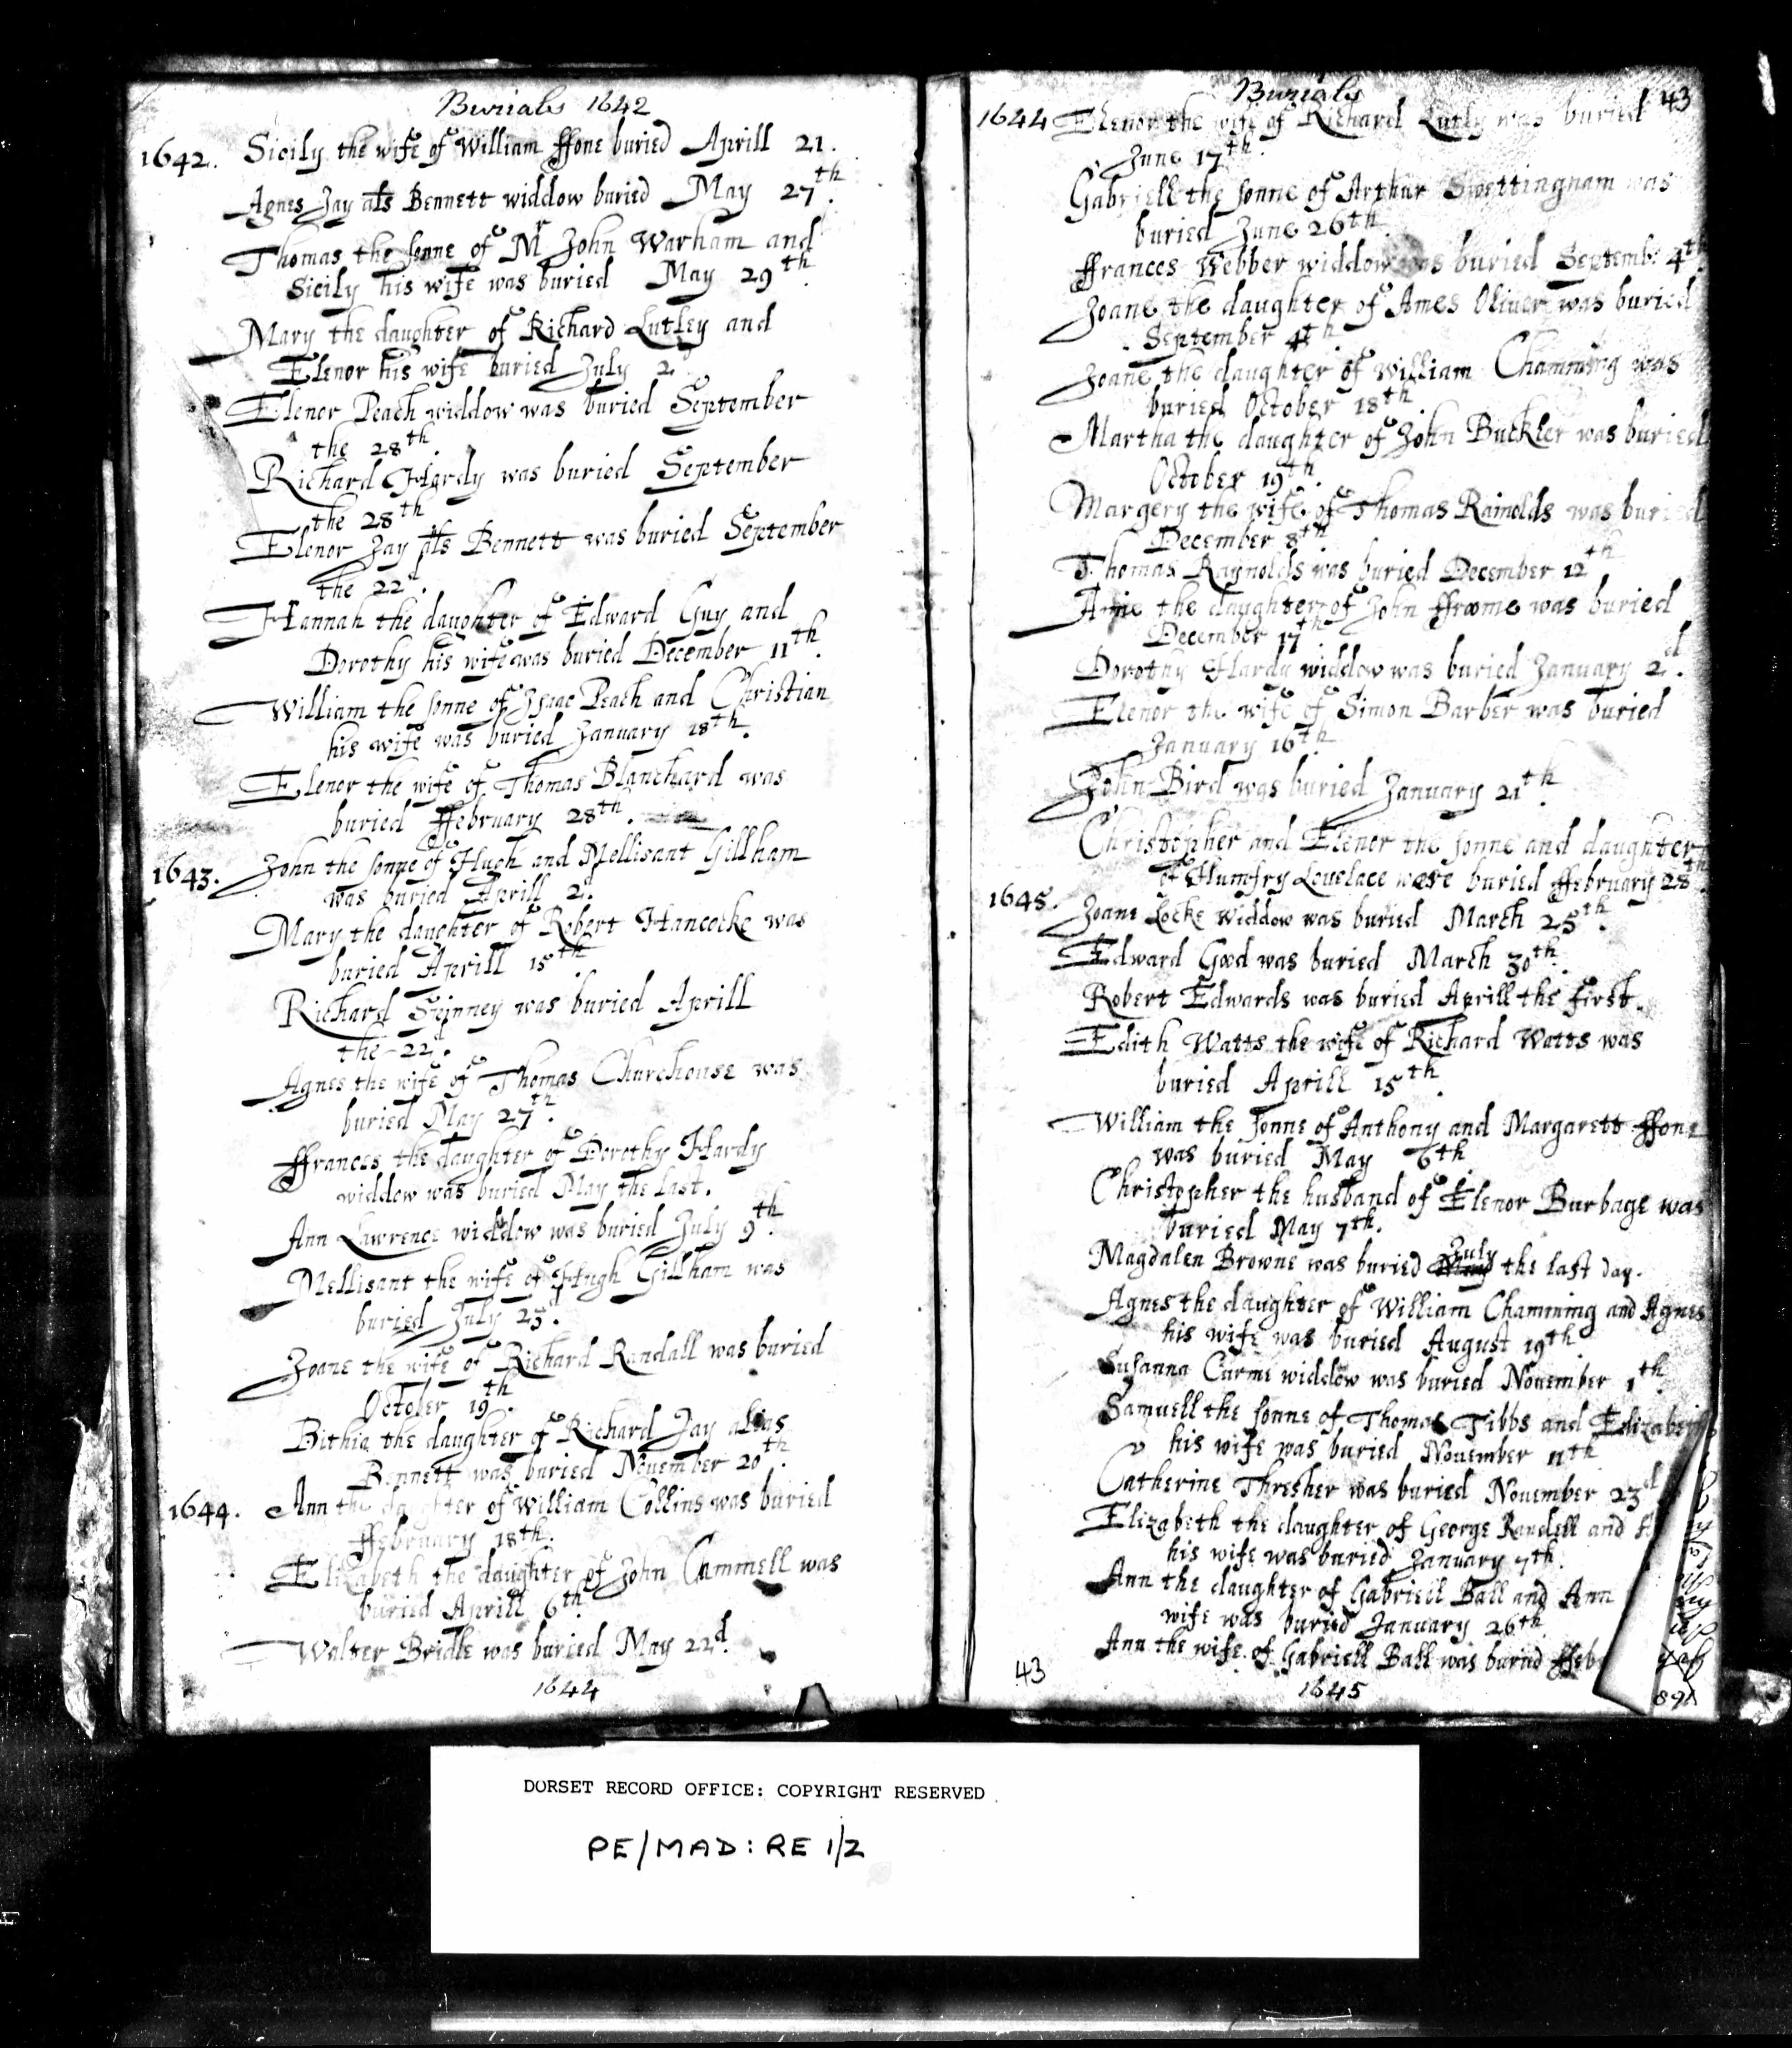 Burials 1642
1642. Sicily the wife of William ffone buried Aprill 21.
Agnes Jay als Bennett widdow buried May 27th.
Thomas the sonne of Mr John Warham and
Sicily his wife was buried May 29th.
Mary the daughter of Richard Lutley and
Elenor his wife buried July 2d
Elenor Peach widdow was buried September
the 28th.
Richard Hardy was buried September
the 28th
Elenor Jay als Bennett was buried September
the 22d.
Hannah the daughter of Edward Guy and
Dorothy his wife was buried December 11th.
William the sonne of Isaac Peach and Christian
his wife was buried January 18th.
Elenor the wife of Thomas Blanchard was
buried ffebruary 28th.
1643. John the sonne of Hugh and Mellisant Gillham
was buried Aprill 2d.
Mary the daughter of Robert Hancocke was
buried Aprill 15th.
Richard Spinney was buried Aprill
the 22d.
Agnes the wife of Thomas Churchouse was
buried May 27th.
ffrances the daughter of Dorothy Hardy
widdow was buried May the last.
Ann Lawrence widdow was buried July 9th.
Mellisant the wife of Hugh Gillham was
buried July 23d.
Joane the wife of Richard Randall was buried
October 19th.
Bithia the daughter of Richard Jay alias
Bennett was buried November 20th.
1644. Ann the daughter of William Collins was buried
ffebruary 18th.
Elizabeth the daughter of John Cammell was
buried Aprill 6th.
Walter Bridle was buried May 22d.
1644
Burials 43
1644 Elenor the wife of Richard Lutly was buried
June 17th.
Gabriell the sonne of Arthur Swettingham was
buried June 26th.
ffrances Webber widdow was buried Septemb: 4th.
Joane the daughter of Ames Oliver was buried
September 4th.
Joane the daughter of William Chamming was
buried October 18th
Martha the daughter of John Buckler was buried
October 19th.
Margery the wife of Thomas Rainolds was buried
December 8th
Thomas Raynolds was buried December 12th.
Amie the daughter of John ffroome was buried
December 17th
Dorothy Hardy widdow was buried January 2d.
Elenor the wife of Simon Barber was buried
January 16th.
John Bird was buried January 21th.
Christopher and Elenor the sonne and daughter
of Humfry Lovelace were buried ffebruary 28th
1645. Joane Locke widdow was buried March 25th.
Edward Good was buried March 30th.
Robert Edwards was buried Aprill the first.
Edith Watts the wife of Richard Watts was
buried Aprill 15th.
William the sonne of Anthony and Margarett ffone
was buried May 6th
Christopher the husband of Elenor Burbage was
buried May 7th.
July
Magdalen Browne was buried May the last day.
Agnes the daughter of William Chamming and Agnes
his wife was buried August 19th.
Susanna Curme widdow was buried November 1th.
Samuell the sonne of Thomas Tibbs and Elizabeth
his wife was buried November 11th
Catherine Thresher was buried November 23d
Elizabeth the daughter of George Randell and
his wife was buried January 7th.
Ann the daughter of Gabriell Ball and Ann
wife was buried January 26th
Ann the wife of Gabriell Ball was buried ffeb
43
1645
DORSET RECORD OFFICE: COPYRIGHT RESERVED
PE/MAD: RE 1/2